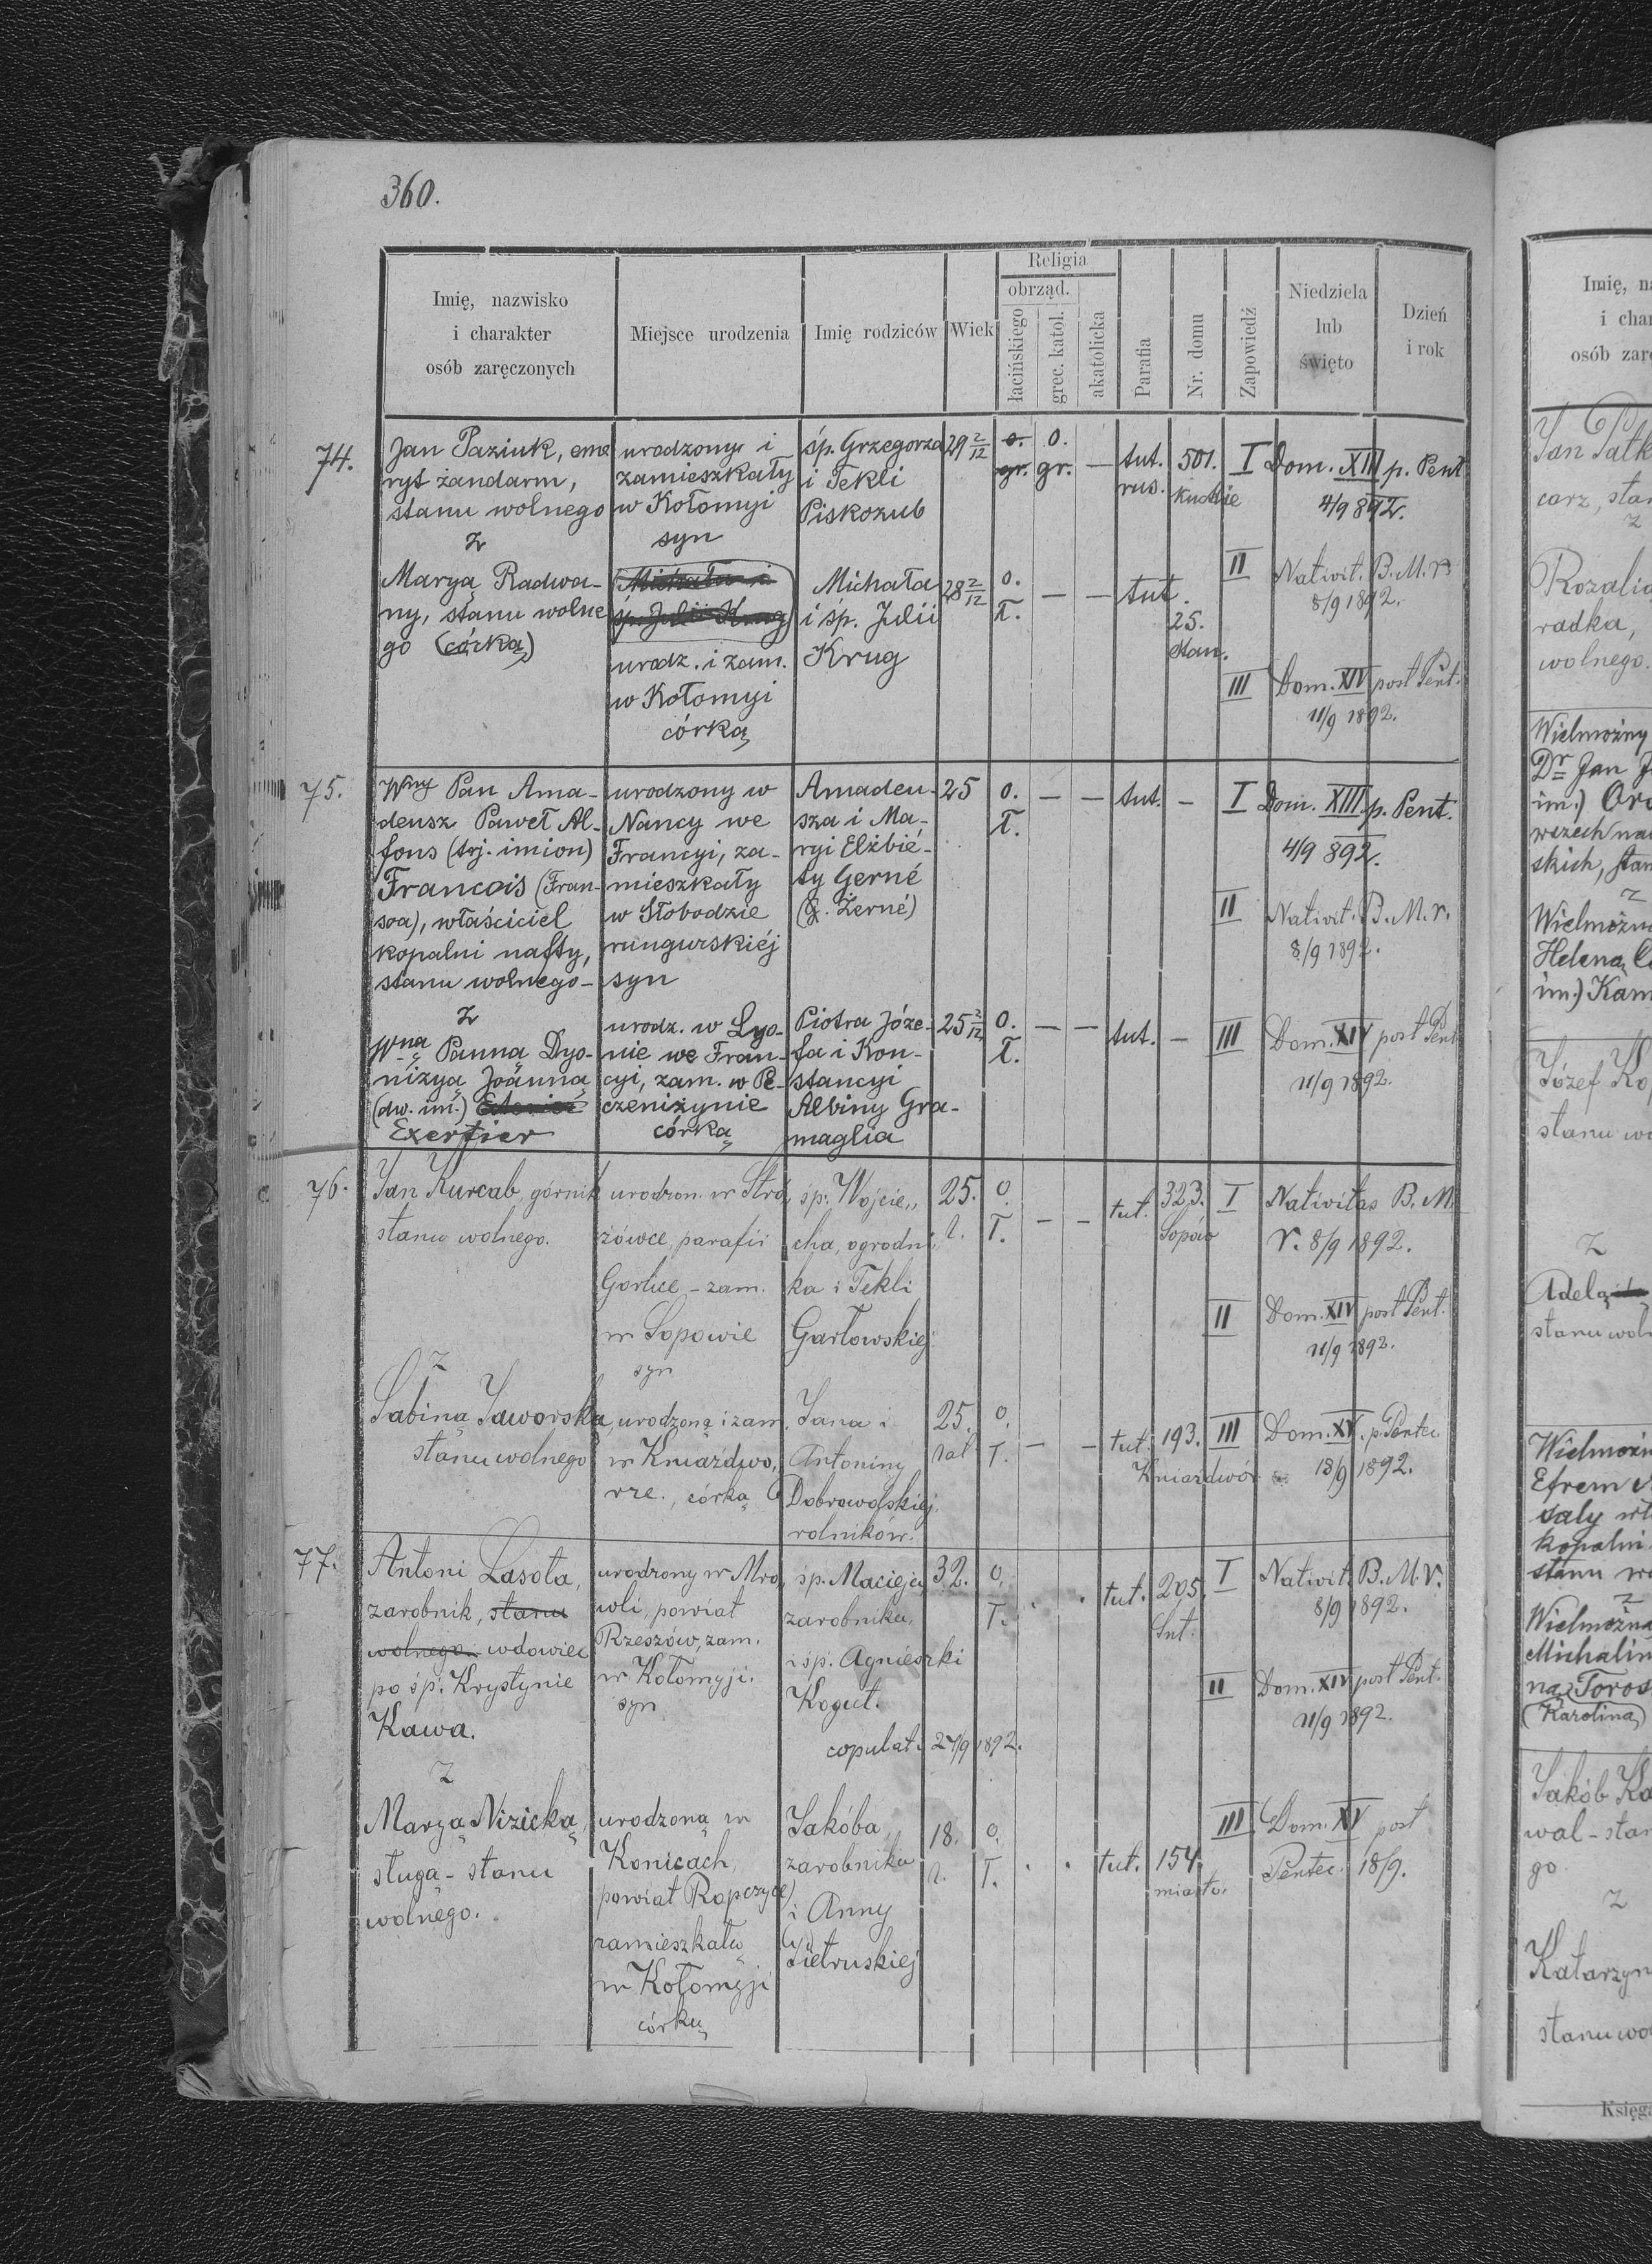 360.
Imię, nazwisko
i charakter
osób zaręczonych
Miejsce urodzenia
Imię rodziców
Wiek
Religia
obrząd.
łacińskiego
grec. katol.
akatolicka
Parafia
Nr. domu
Zapowiedź
Niedziela
lub
święto
Dzień
i rok
74.
Jan Paziuk, eme
ryt żandarm,
stanu wolnego
z
Maryą Radwa-
ny, stanu wolne
go (córka)
urodzony i
zamieszkały
w Kołomyi
syn
Michała i
śp. Julii Krug
urodz. i zam.
w Kołomyi
córką
śp. Grzegorza
i Tekli
Piskozub
Michała
i śp. Julii
Krug
29 2/12
28 2/12
o. o.
gr. gr. —
o.
ł. — —
tut.
rus.
tut.
501.
25.
Stan.
I Dom. XIII p. Pent
4/9 892.
II Nativit. B. M. V.
8/9 1892.
III Dom. XIV post Pent.
11/9 1892.
75.
Wny Pan Ama-
deusz Paweł Al-
fons (trj. imion)
Francois (Fran-
soa), właściciel
kopalni nafty,
stanu wolnego-
z
Wną Panną Dyo-
nizyą Joanną
(dw. im.)
Exertier
urodzony w
Nancy we
Francyi, za-
mieszkały
w Słobodzie
rungurskiéj
syn
urodz. w Lyo-
nie we Fran-
cyi, zam. w Pe-
czeniżynie
córką
Amadeu-
sza i Ma-
ryi Elżbie-
ty Gerné
(Żerné)
Piotra Józe-
fa i Kon-
stancyi
Albiny Gra-
maglia
25
25 2/12
o.
ł. — —
o.
ł. — —
tut. —
tut. —
I Dom. XIII p. Pent.
4/9 892.
II Nativit. B. M. V.
8/9 1892.
III Dom. XIV post Pent
11/9 1892.
76.
Jan Kurcab, górnik
stanu wolnego.
z
Sabiną Jaworską,
stanu wolnego
urodzon. w Stró
żówce, parafii
Gorlice - zam.
w Sopowie
syn
urodzoną i zam.
w Kniaźdwo,
rze., córką
śp. Wojcie,,
cha, ogrodni,
ka i Tekli
Garłowskiej
Jana i
Antoniny
Dobrowolskiej
rolników.
25.
r.
25.
lat
o.
ł. — —
o.
ł. — —
tut. 323.
Sopów
tut. 193.
Kniazdwór
I Nativitas B. M.
V. 8/9 1892.
II Dom. XIV post Pent.
11/9 1892.
III Dom. XV. p. Pentec.
18/9 1892.
77.
Antoni Lasota,
zarobnik, stanu
wolnego wdowiec
po śp. Krystynie
Kawa.
z
Maryą Nizicką,
sługą - stanu
wolnego.
urodzony w Mro,
wli, powiat
Rzeszów, zam.
w Kołomyji.
syn
urodzoną w
Konicach,
powiat Ropczyce,
zamieszkałą
w Kołomyji
córką
śp. Macieja
zarobnika,
i śp. Agnieszki
Kogut.
copulat. 27/9 1892.
Jakóba
zarobnika
i Anny
Pietruskiej
32.
18.
r.
o.
ł.
o.
ł.
tut. 205.
Snt.
tut. 154.
miasto.
I Nativit. B. M. V.
8/9 1892.
II Dom. XIV post Pent.
11/9 1892.
III Dom. XV post
Pentec. 18/9.
Imię, na
i char
osób zarę
Jan Patk
carz, stan
z
Rozalią
radka,
wolnego.
Wielmożny
Dr Jan
im.)
wszech nau
skich, stan
z
Wielmożną
Heleną
im.) Kam
Józef Ko
stanu wo
z
Adelą
stanu woln
Wielmożn
Efrem
kopalni
stanu wo
z
Wielmożną
Michalin
ną Toros
(Karoliną)
Jakób Ka
wal - stan
go
z
Katarzyn
stanu wo
Księga